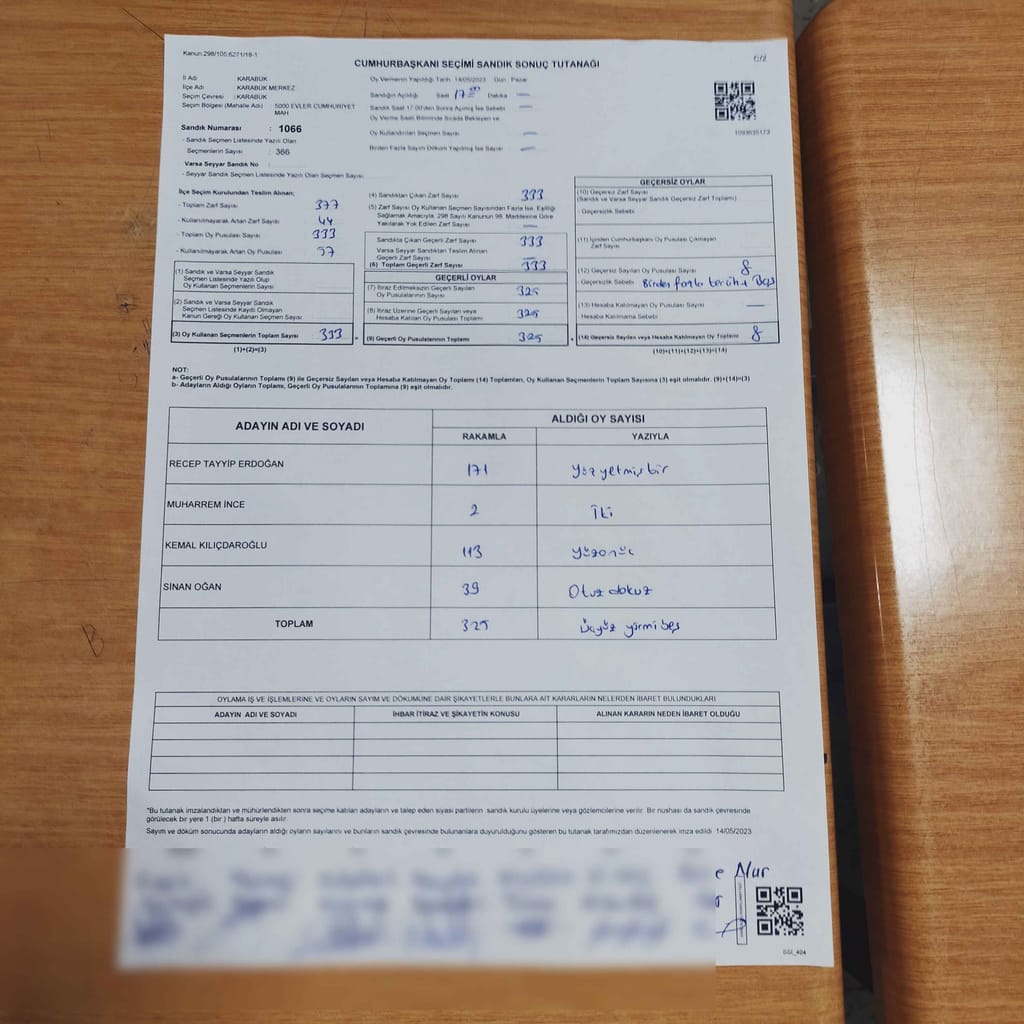 Kanun:298/105,6271/18-1
CUMHURBAŞKANI SEÇİMİ SANDIK SONUÇ TUTANAĞI
İl Adı : KARABÜK
İlçe Adı : KARABÜK MERKEZ
Seçim Çevresi : KARABÜK
Seçim Bölgesi (Mahalle Adı) : 5000 EVLER CUMHURİYET MAH
Sandık Numarası : 1066
- Sandık Seçmen Listesinde Yazılı Olan
Seçmenlerin Sayısı : 366
Varsa Seyyar Sandık No :
- Seyyar Sandık Seçmen Listesinde Yazılı Olan Seçmen Sayısı
Oy Vermenin Yapıldığı Tarih 14/05/2023 Gün : Pazar
Sandığın Açıldığı Saat 17:00 Dakika —
Sandık Saat 17:00'den Sonra Açılmış İse Sebebi —
Oy Verme Saati Bitiminde Sırada Bekleyen ve
Oy Kullandırılan Seçmen Sayısı —
Birden Fazla Sayım Döküm Yapılmış İse Sayısı —
1093635173
İlçe Seçim Kurulundan Teslim Alınan;
- Toplam Zarf Sayısı 377
- Kullanılmayarak Artan Zarf Sayısı 44
- Toplam Oy Pusulası Sayısı 333
- Kullanılmayarak Artan Oy Pusulası
(1) Sandık ve Varsa Seyyar Sandık
Seçmen Listesinde Yazılı Olup
Oy Kullanan Seçmenlerin Sayısı
(2) Sandık ve Varsa Seyyar Sandık
Seçmen Listesinde Kayıtlı Olmayan
Kanun Gereği Oy Kullanan Seçmen Sayısı
(3) Oy Kullanan Seçmenlerin Toplam Sayısı 333
(1)+(2)=(3)
(4) Sandıktan Çıkan Zarf Sayısı 333
(5) Zarf Sayısı Oy Kullanan Seçmen Sayısından Fazla İse, Eşitliği
Sağlamak Amacıyla; 298 Sayılı Kanunun 98. Maddesine Göre
Yakılarak Yok Edilen Zarf Sayısı —
Sandıkta Çıkan Geçerli Zarf Sayısı 333
Varsa Seyyar Sandıktan Teslim Alınan
Geçerli Zarf Sayısı —
(6) Toplam Geçerli Zarf Sayısı 333
GEÇERLİ OYLAR
(7) İtiraz Edilmeksizin Geçerli Sayılan
Oy Pusulalarının Sayısı 325
(8) İtiraz Üzerine Geçerli Sayılan veya
Hesaba Katılan Oy Pusulası Toplamı 325
(9) Geçerli Oy Pusulalarının Toplamı 325
GEÇERSİZ OYLAR
(10) Geçersiz Zarf Sayısı
(Sandık ve Varsa Seyyar Sandık Geçersiz Zarf Toplamı)
- Geçersizlik Sebebi
(11) İçinden Cumhurbaşkanı Oy Pusulası Çıkmayan
Zarf Sayısı
(12) Geçersiz Sayılan Oy Pusulası Sayısı 8
- Geçersizlik Sebebi Birden fazla
(13) Hesaba Katılmayan Oy Pusulası Sayısı —
- Hesaba Katılmama Sebebi
(14) Geçersiz Sayılan veya Hesaba Katılmayan Oy Toplamı 8
(10)+(11)+(12)+(13)=(14)
NOT:
a- Geçerli Oy Pusulalarının Toplamı (9) ile Geçersiz Sayılan veya Hesaba Katılmayan Oy Toplamı (14) Toplamları, Oy Kullanan Seçmenlerin Toplam Sayısına (3) eşit olmalıdır. (9)+(14)=(3)
b- Adayların Aldığı Oyların Toplamı, Geçerli Oy Pusulalarının Toplamına (9) eşit olmalıdır.
ADAYIN ADI VE SOYADI ALDIĞI OY SAYISI
RAKAMLA YAZIYLA
RECEP TAYYİP ERDOĞAN 171 Yüz yetmiş bir
MUHARREM İNCE 2 İki
KEMAL KILIÇDAROĞLU 113 Yüzonüç
SİNAN OĞAN 39 Otuz dokuz
TOPLAM 325 Üçyüz yirmi beş
OYLAMA İŞ VE İŞLEMLERİNE VE OYLARIN SAYIM VE DÖKÜMÜNE DAİR ŞİKAYETLERLE BUNLARA AİT KARARLARIN NELERDEN İBARET BULUNDUKLARI
ADAYIN ADI VE SOYADI İHBAR İTİRAZ VE ŞİKAYETİN KONUSU ALINAN KARARIN NEDEN İBARET OLDUĞU
*Bu tutanak imzalandıktan ve mühürlendikten sonra seçime katılan adayların ve talep eden siyasi partilerin sandık kurulu üyelerine veya gözlemcilerine verilir. Bir nüshası da sandık çevresinde
görülecek bir yere 1 (bir ) hafta süreyle asılır.
Sayım ve döküm sonucunda adayların aldığı oyların sayılarını ve bunların sandık çevresinde bulunanlara duyurulduğunu gösteren bu tutanak tarafımızdan düzenlenerek imza edildi 14/05/2023
e Nur